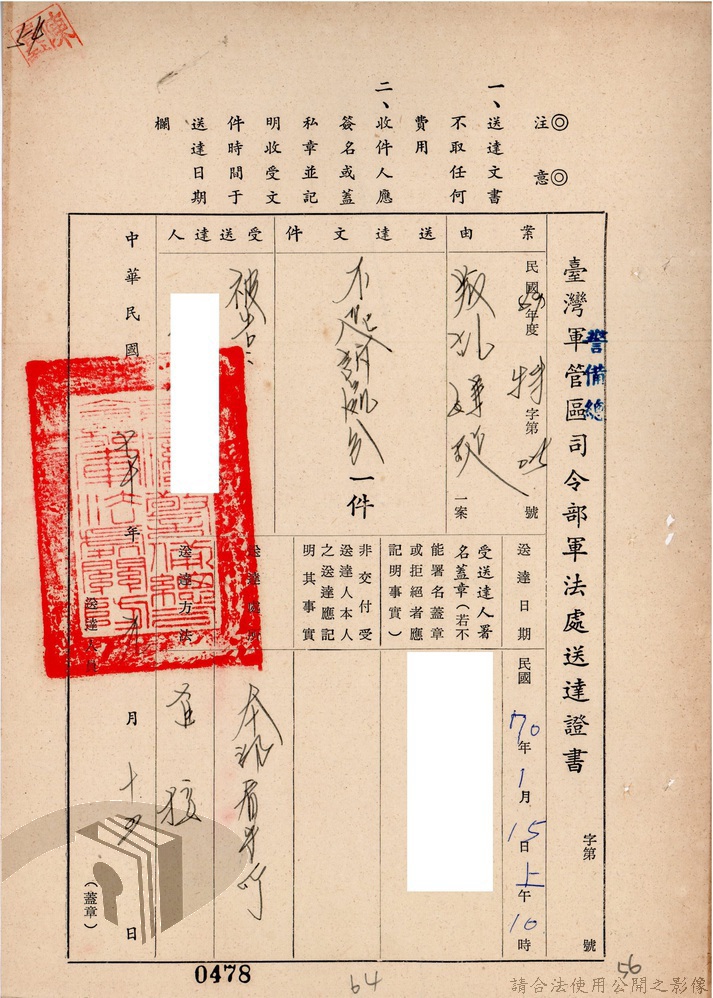 54
注意
一、送達文書
不取任何
費用
二、收件人應
簽名或蓋
私章並記
明收受文
件時間于
送達日期
欄
臺灣軍管區司令部軍法處送達證書
警備總
字第 號
案由
民國59年度 特字第 號
叛亂 一案
送達文件
不起訴處分 一件
受送達人
被告:
送達日期
民國70年1月15日上午10時
受送達人署
名蓋章(若不
能署名蓋章
或拒絕者應
記明事實)
非交付受
送達人本人
之送達應記
明其事實
送達處所
本部看守所
送達方法
直接
中華民國 年 月 十四 日
送達人
(蓋章)
0478
64
56
請合法使用公開之影像